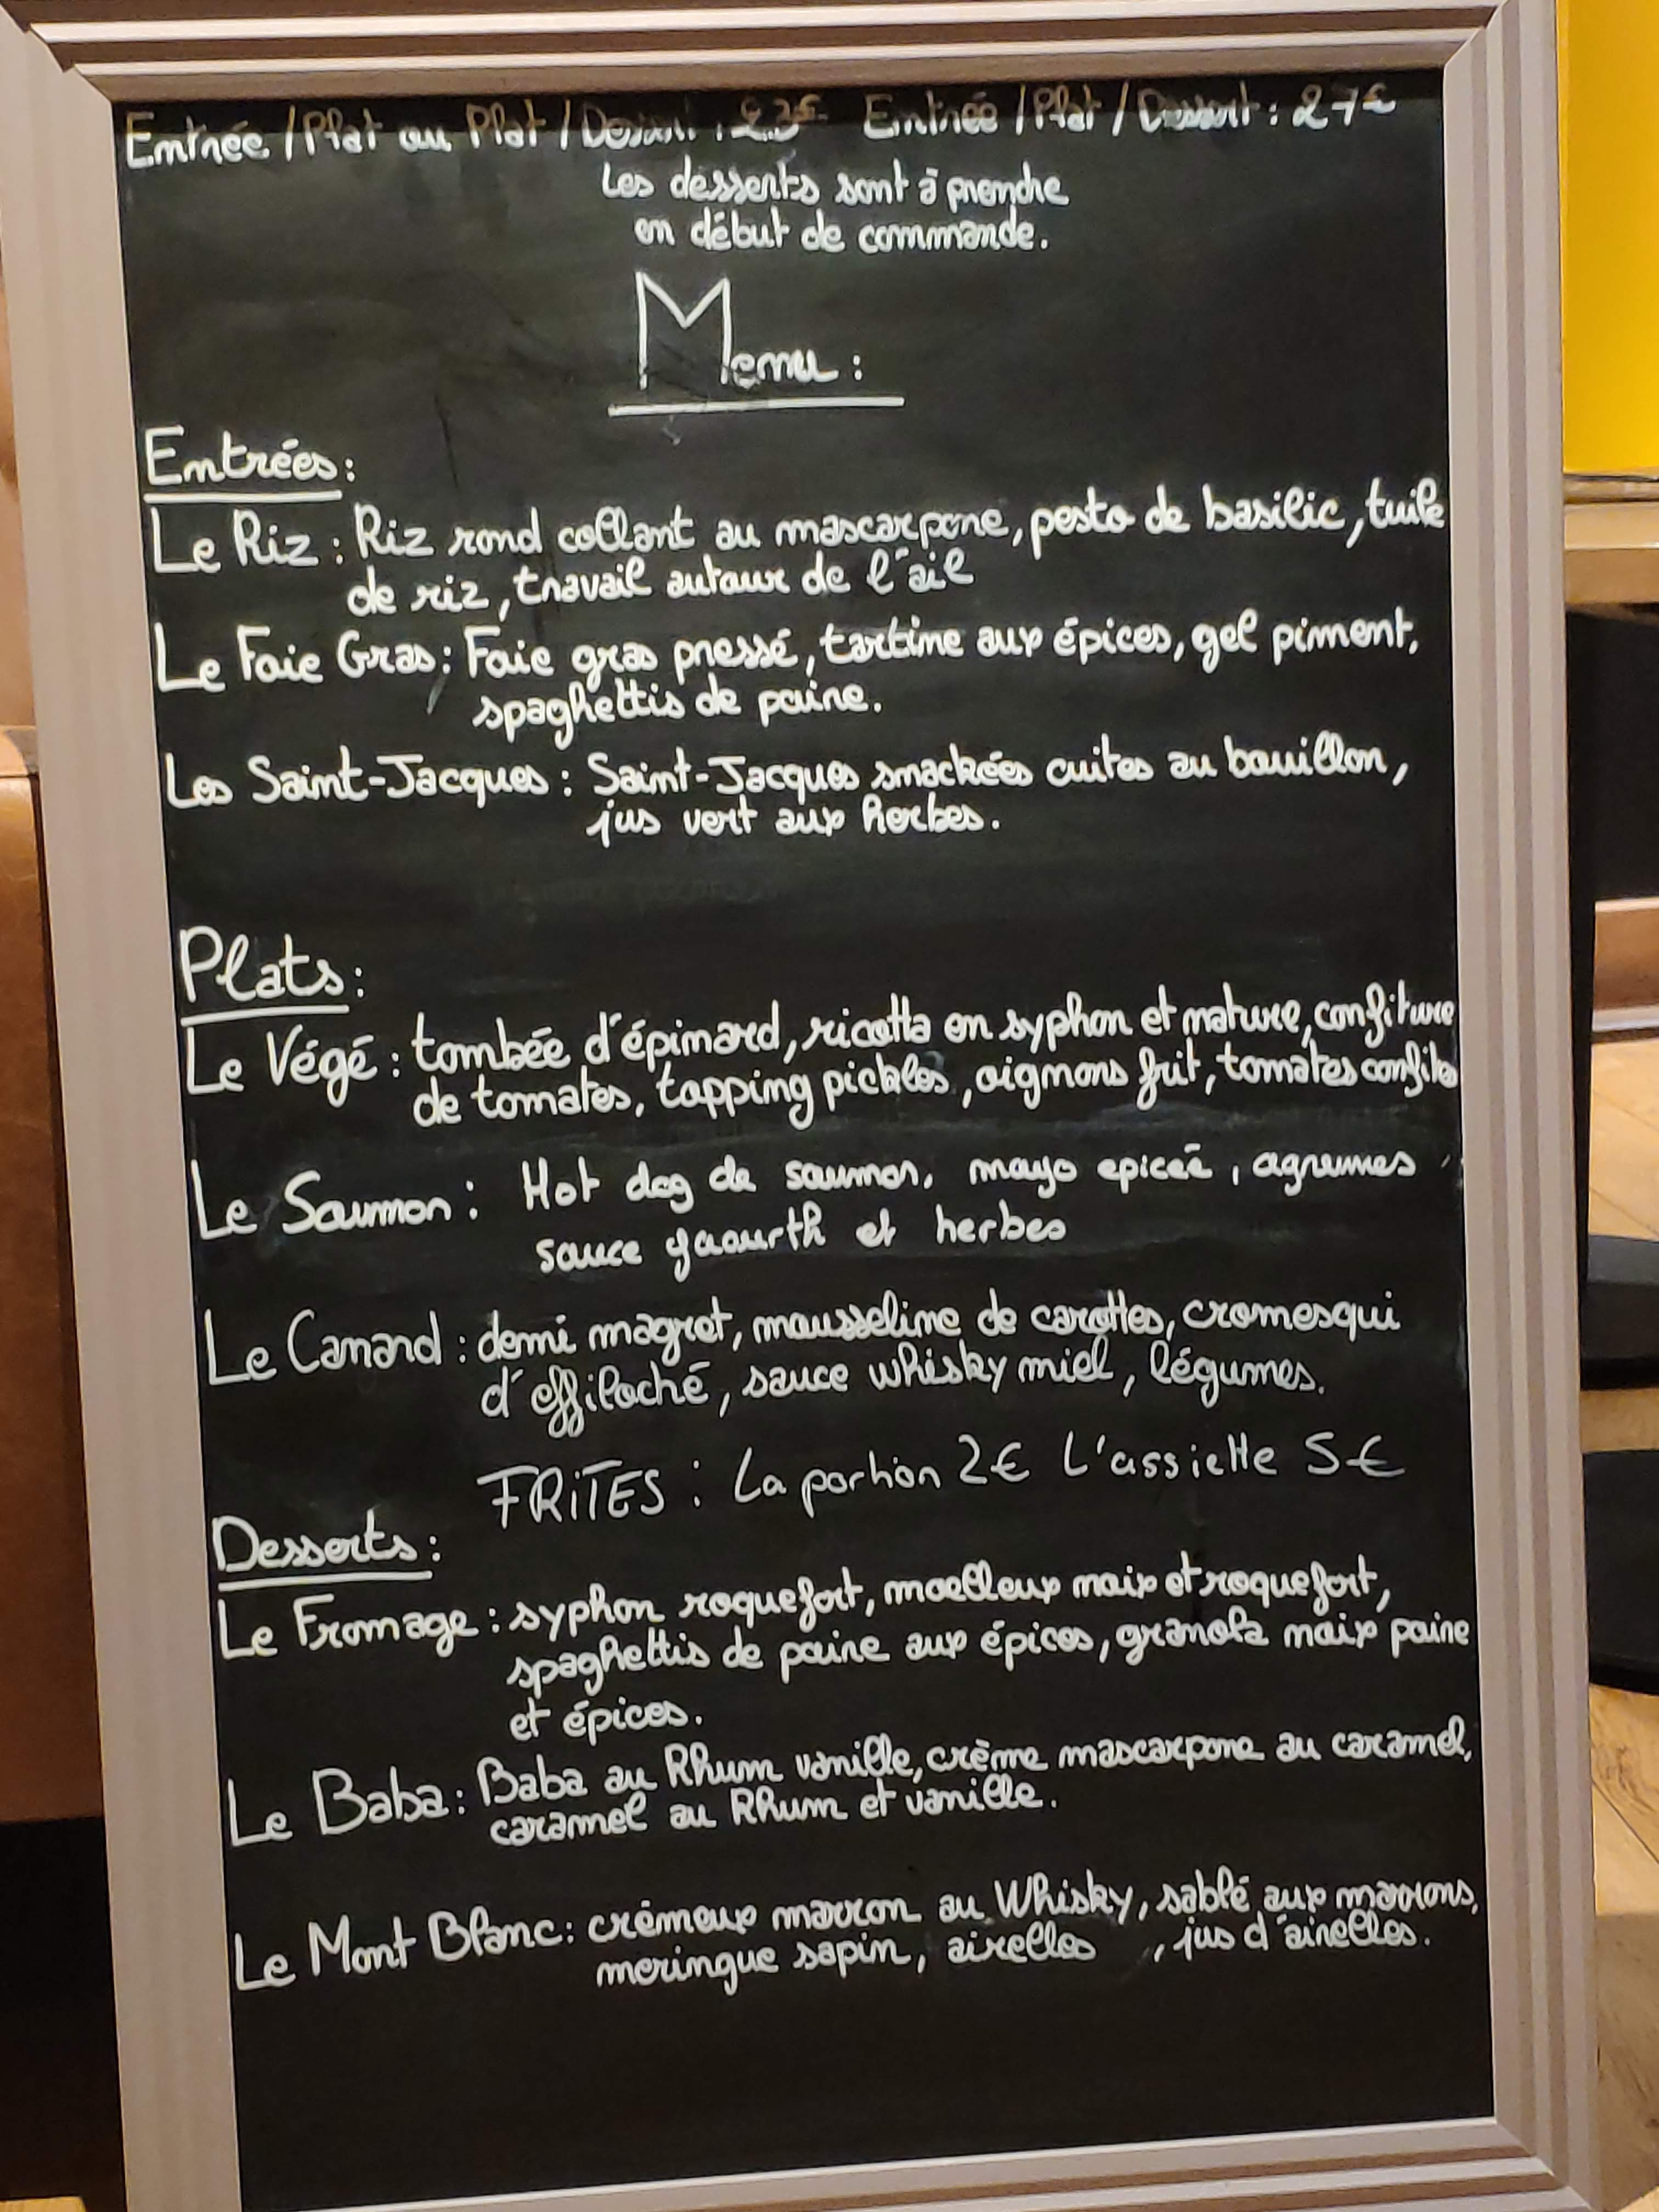 Entrée / Plat ou Plat / Dessert : 23€ Entrée / Plat / Dessert : 27€
Les desserts sont à prendre
en début de commande.
Menu :
Entrées :
Le Riz : Riz rond collant au mascarpone, pesto de basilic, tuile
de riz, travail autour de l'ail
Le Foie Gras : Foie gras pressé, tartine aux épices, gel piment,
spaghettis de poire.
Les Saint-Jacques : Saint-Jacques smackées cuites au bouillon,
jus vert aux herbes.
Plats :
Le Végé : tombée d'épinard, ricotta en syphon et nature, confiture
de tomates, topping pickles, oignons frit, tomates confites
Le Saumon : Hot dog de saumon, mayo epicée, agrumes
sauce yaourth et herbes
Le Canard : demi magret, mousseline de carottes, cromesqui
d'effiloché, sauce whisky miel, légumes.
FRITES : La portion 2€ L'assiette 5€
Desserts :
Le Fromage : syphon roquefort, moelleux maix et roquefort,
spaghettis de poire aux épices, granola maix poire
et épices.
Le Baba : Baba au Rhum vanille, crème mascarpone au caramel,
caramel au Rhum et vanille.
Le Mont Blanc : crémeux marron au Whisky, sablé aux marrons,
meringue sapin, airelles , jus d'airelles.